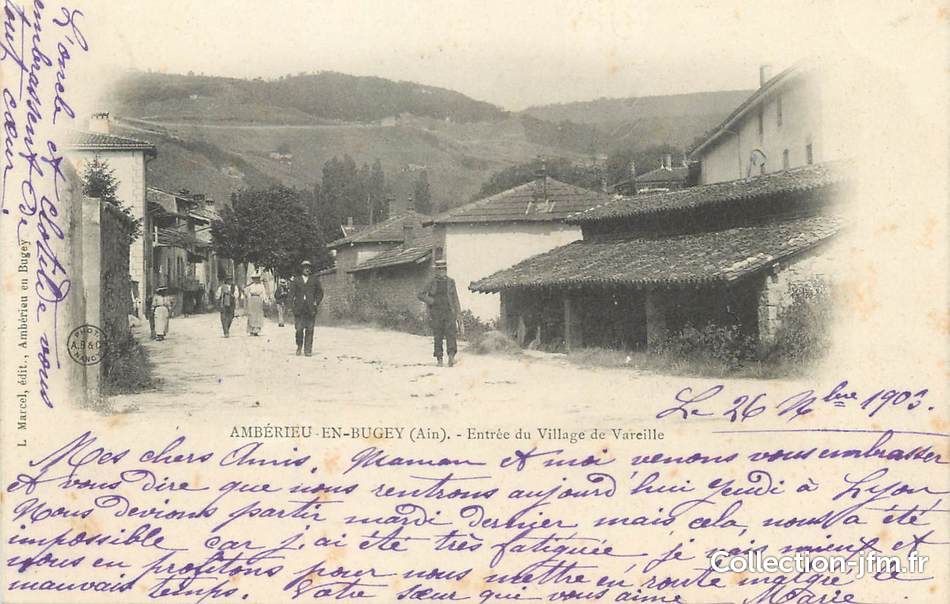 L'oncle et Clotilde vous
embrassent de
tout cœur
L. Marcel, édit., Ambérieu en Bugey
PHOT
A.B & C
NANCY
AMBÉRIEU-EN-BUGEY (Ain). - Entrée du Village de Vareille
Le 26 Nbre 1903.
Mes chers Amis. Maman et moi venons vous embrasser
et vous dire que nous rentrons aujourd'hui Jeudi à Lyon
Nous devions partir mardi dernier mais cela, nous a été
impossible car j'ai été très fatiguée je vais mieux et
nous en profitons pour nous mettre en route malgré ce
mauvais temps. Votre sœur qui vous aime
Collection-jfm.fr